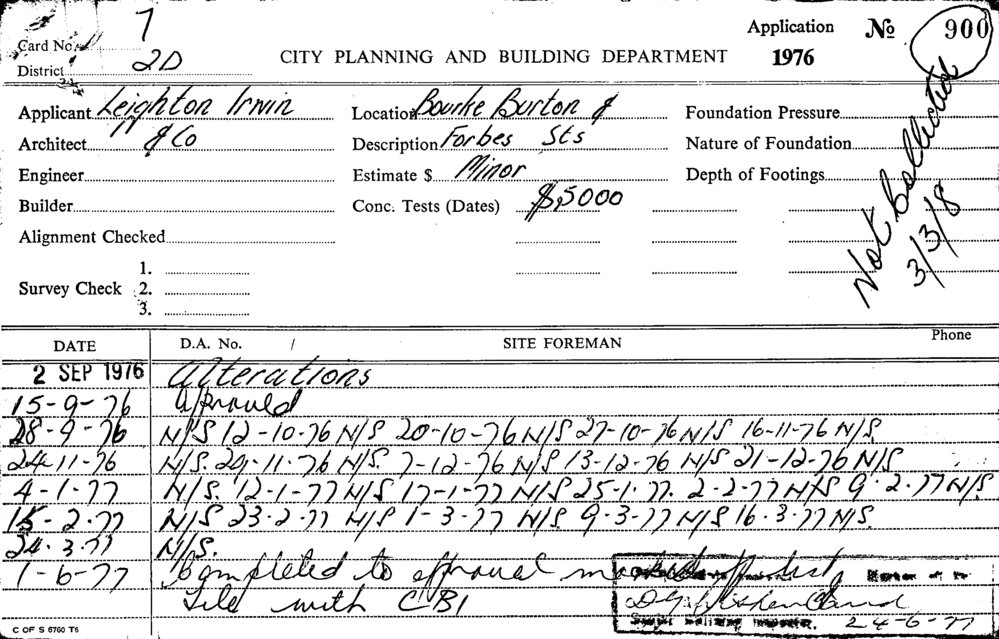 7
Card No.
Application No 900
District 2D
CITY PLANNING AND BUILDING DEPARTMENT
1976
Applicant Leighton Irwin
Location Bourke Burton &
Foundation Pressure
Architect " & Co
Description Forbes Sts
Nature of Foundation
Engineer
Estimate $ Minor
Depth of Footings
Builder
Conc. Tests (Dates) $5000
Not Collected
3/3/8
Alignment Checked
1.
Survey Check 2.
3.
DATE D.A. No. / SITE FOREMAN Phone
2 SEP 1976 Alterations
15-9-76 Approved
28-9-76 N/S 12-10-76 N/S 20-10-76 N/S 27-10-76 N/S 16-11-76 N/S
24-11-76 N/S. 29-11-76 N/S. 7-12-76 N/S 13-12-76 N/S 21-12-76 N/S
4-1-77 N/S. 12-1-77 N/S 17-1-77 N/S 25-1-77. 2-2-77 N/S 9-2-77 N/S
15-2-77 N/S 23-2-77 N/S 1-3-77 N/S 9-3-77 N/S 16-3-77 N/S.
24-3-77 N/S.
1-6-77 Completed to approval marked off list
File with CBI
24-6-77
C OF S 6760 T6